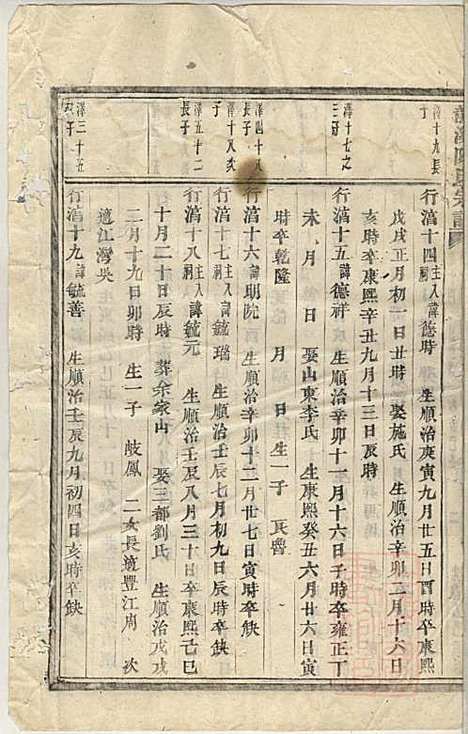 澪十九長
子
行㵯十四主入祠諱德時 生順治庚寅九月廿五日酉時卒康熙
戊戌正月初一日丑時 娶施氏 生順治辛卯二月十六日
亥時卒康熙辛丑九月十三日辰時
澪十七之
三子
行㵯十五諱德祥 生順治辛卯十一月十六日子時卒雍正丁
未 月 日 娶山東李氏 生康熙癸丑六月廿六日寅
時卒乾隆 月 日 生一子
澪四十八
長子
行㵯十六諱明院 生順治辛卯十二月廿七日寅時卒缺
澪十八次
子
行㵯十七主入祠諱毓瑞 生順治壬辰七月初九日辰時卒缺
澪五十二
長子
行㵯十八主入祠諱毓元 生順治壬辰八月三十日卒康熙己巳
十月二十日辰時 葬余家山 娶三都劉氏 生順治戊戌
二月十九日卯時 生一子 岐鳳 二女長適豐江周 次
適江灣吳
澪三十五
次子
行㵯十九諱毓善 生順治壬辰九月初四日亥時卒缺